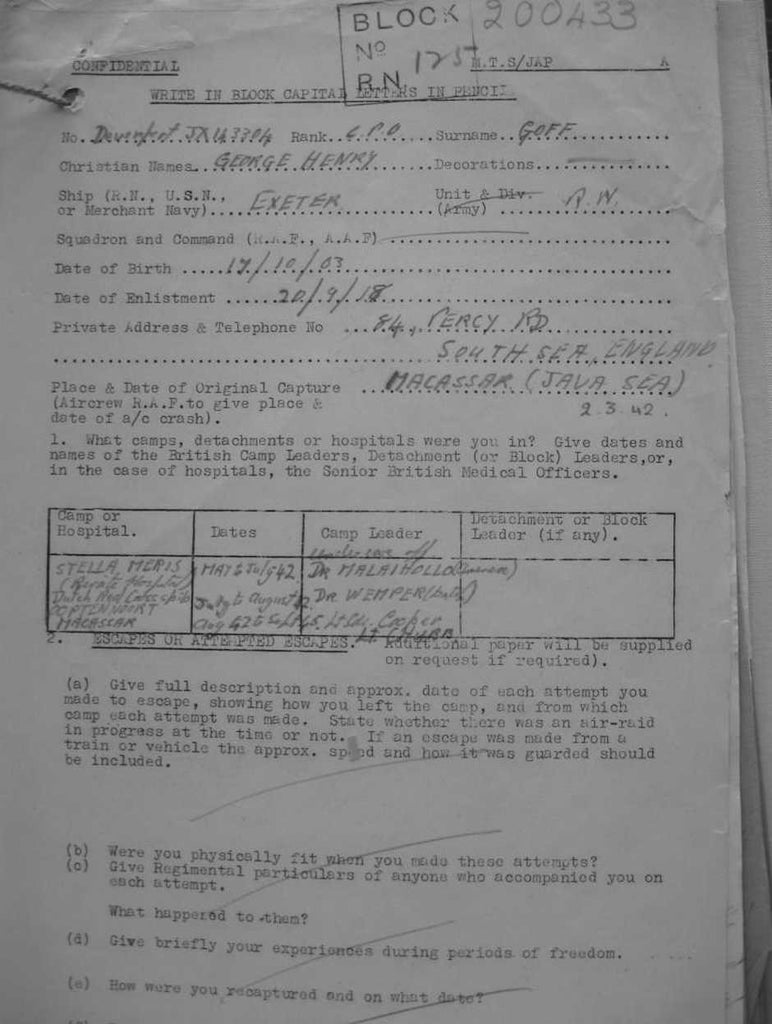 BLOCK 200433
No 125
R.N.
CONFIDENTIAL M.T.S/JAP A
WRITE IN BLOCK CAPITAL LETTERS IN PENCIL.
No. Devonport Rank. C.P.O. Surname. GOFF
Christian Names. GEORGE HENRY Decorations
Ship (R.N., U.S.N., Unit & Div.
or Merchant Navy) EXETER (Army) R.N.
Squadron and Command (R.A.F., A.A.F)
Date of Birth 17/10/03
Date of Enlistment 20/9/18
Private Address & Telephone No 84, PERCY RD
SOUTH SEA, ENGLAND
Place & Date of Original Capture MACASSAR (JAVA SEA)
(Aircrew R.A.F. to give place & 2.3.42.
date of a/c crash).
1. What camps, detachments or hospitals were you in? Give dates and
names of the British Camp Leaders, Detachment (or Block) Leaders, or,
in the case of hospitals, the Senior British Medical Officers.
Camp or Hospital. Dates Camp Leader Detachment or Block Leader (if any).
under care off
STELLA MERIS MAY to July 42 DR MALAIHOLLO
(Private Hospital)
Dutch Red Cross July to August 42 DR WEMPER
OPTENNOORT
MACASSAR Aug 42 to Sept 45 Lt Cdr. Cooper
Lt CHUBB
2. ESCAPES OR ATTEMPTED ESCAPES. Additional paper will be supplied
on request if required).
(a) Give full description and approx. date of each attempt you
made to escape, showing how you left the camp, and from which
camp each attempt was made. State whether there was an air-raid
in progress at the time or not. If an escape was made from a
train or vehicle the approx. speed and how it was guarded should
be included.
(b) Were you physically fit when you made these attempts?
(c) Give Regimental particulars of anyone who accompanied you on
each attempt.
What happened to them?
(d) Give briefly your experiences during periods of freedom.
(e) How were you recaptured and on what date?